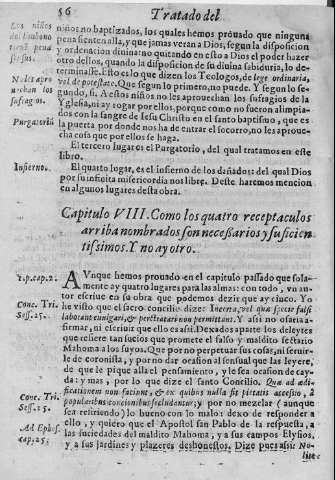 56
Tratado del
niños no baptizados, los quales hemos prouado que ninguna
pena sienten alla, y que jamas veran a Dios, segun la disposicion
y ordenacion diuina: no quitando en esto a Dios el poder hazer
otro dellos, quando la disposicion de su diuina sabiduria, lo de-
terminasse. Esto es lo que dizen los Teologos, de lege ordinaria,
vel de potestate. Que segun lo primero, no puede. Y segun lo se-
gundo, si. A estos niños no les aprouechan los sufragios de la
Yglesia, ni ay rogar por ellos, porque como no fueron alimpia-
dos con la sangre de Iesu Christo en el santo baptismo, que es
la puerta por donde nos ha de entrar el socorro, no les aproue-
cha cosa que por ellos se haga.
El tercero lugar es el Purgatorio, del qual tratamos en este
libro.
El quarto lugar, es el infierno de los dañados: del qual Dios
por su infinita misericordia nos libre. Deste haremos mencion
en algunos lugares desta obra.
Los niños
del limbono
pena
Noles apro
uechan los
sufragos.
Purgatorio
Infierno.
Capitulo VIII. Como los quatro receptaculos
arriba nombrados son necessarios y suficien
tissimos. Y no ay otro.
AVnque hemos prouado en el capitulo passado que sola-
mente ay quatro lugares para las almas: con todo, vn au-
tor escriue en su obra que podemos dezir que ay cinco. Yo
he visto que el sacro concilio dize:
laborant euulgari, & pertractari non permittant. Y assi no osaria a-
firmar, ni escriuir que ello es assi. Dexados aparte los deleytes
que refiere tan suzios que promete el falso y maldito sectario
Mahoma a los suyos. Que por no perpetuar sus cosas, ni seruir-
le de coronista, y por no dar ocasion al sensual que las leyere,
de que le pique alla el pensamiento, y le sea ocasion de cay-
da: y mas, por lo que dize el santo Concilio. Quæ ad ædi-
ficationem non faciunt, & ex quibus nulla fit pietatis accessio, à
popularibus concionibus secludantur: y por no mezclar (aunque
sea refiriendo) lo bueno con lo malo: dexo de responder a
ello, y quiero que el Apostol san Pablo de la respuesta, a
las suciedades del maldito Mahoma, y a sus campos Elysios,
y a sus jardines y plazeres deshonestos. Dize pues assi: No-
lite
1.p.cap.2.
Conc. Tri.
Sess. 25.
Conc. Tri.
Sess. 25.
Ad Ephes.
cap. 5.